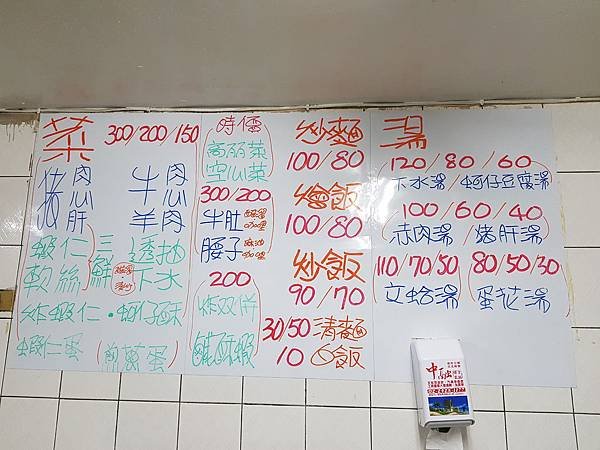 菜 300/200/150
豬 肉 心 肝
牛 肉 心
羊肉
蝦仁
軟絲
三鮮
透抽
下水
炸蝦仁・蚵仔酥
蝦仁蛋
煎蔥蛋
時價
高麗菜
空心菜
300/200
牛肚
腰子
200
炸双併
鹹酥蝦
炒麵
100/80
燴飯
100/80
炒飯
90/70
30/50 清麵
10 白飯
湯
120/80/60
下水湯/蚵仔豆腐湯
100/60/40
赤肉湯/豬肝湯
110/70/50 80/50/30
文蛤湯/蛋花湯